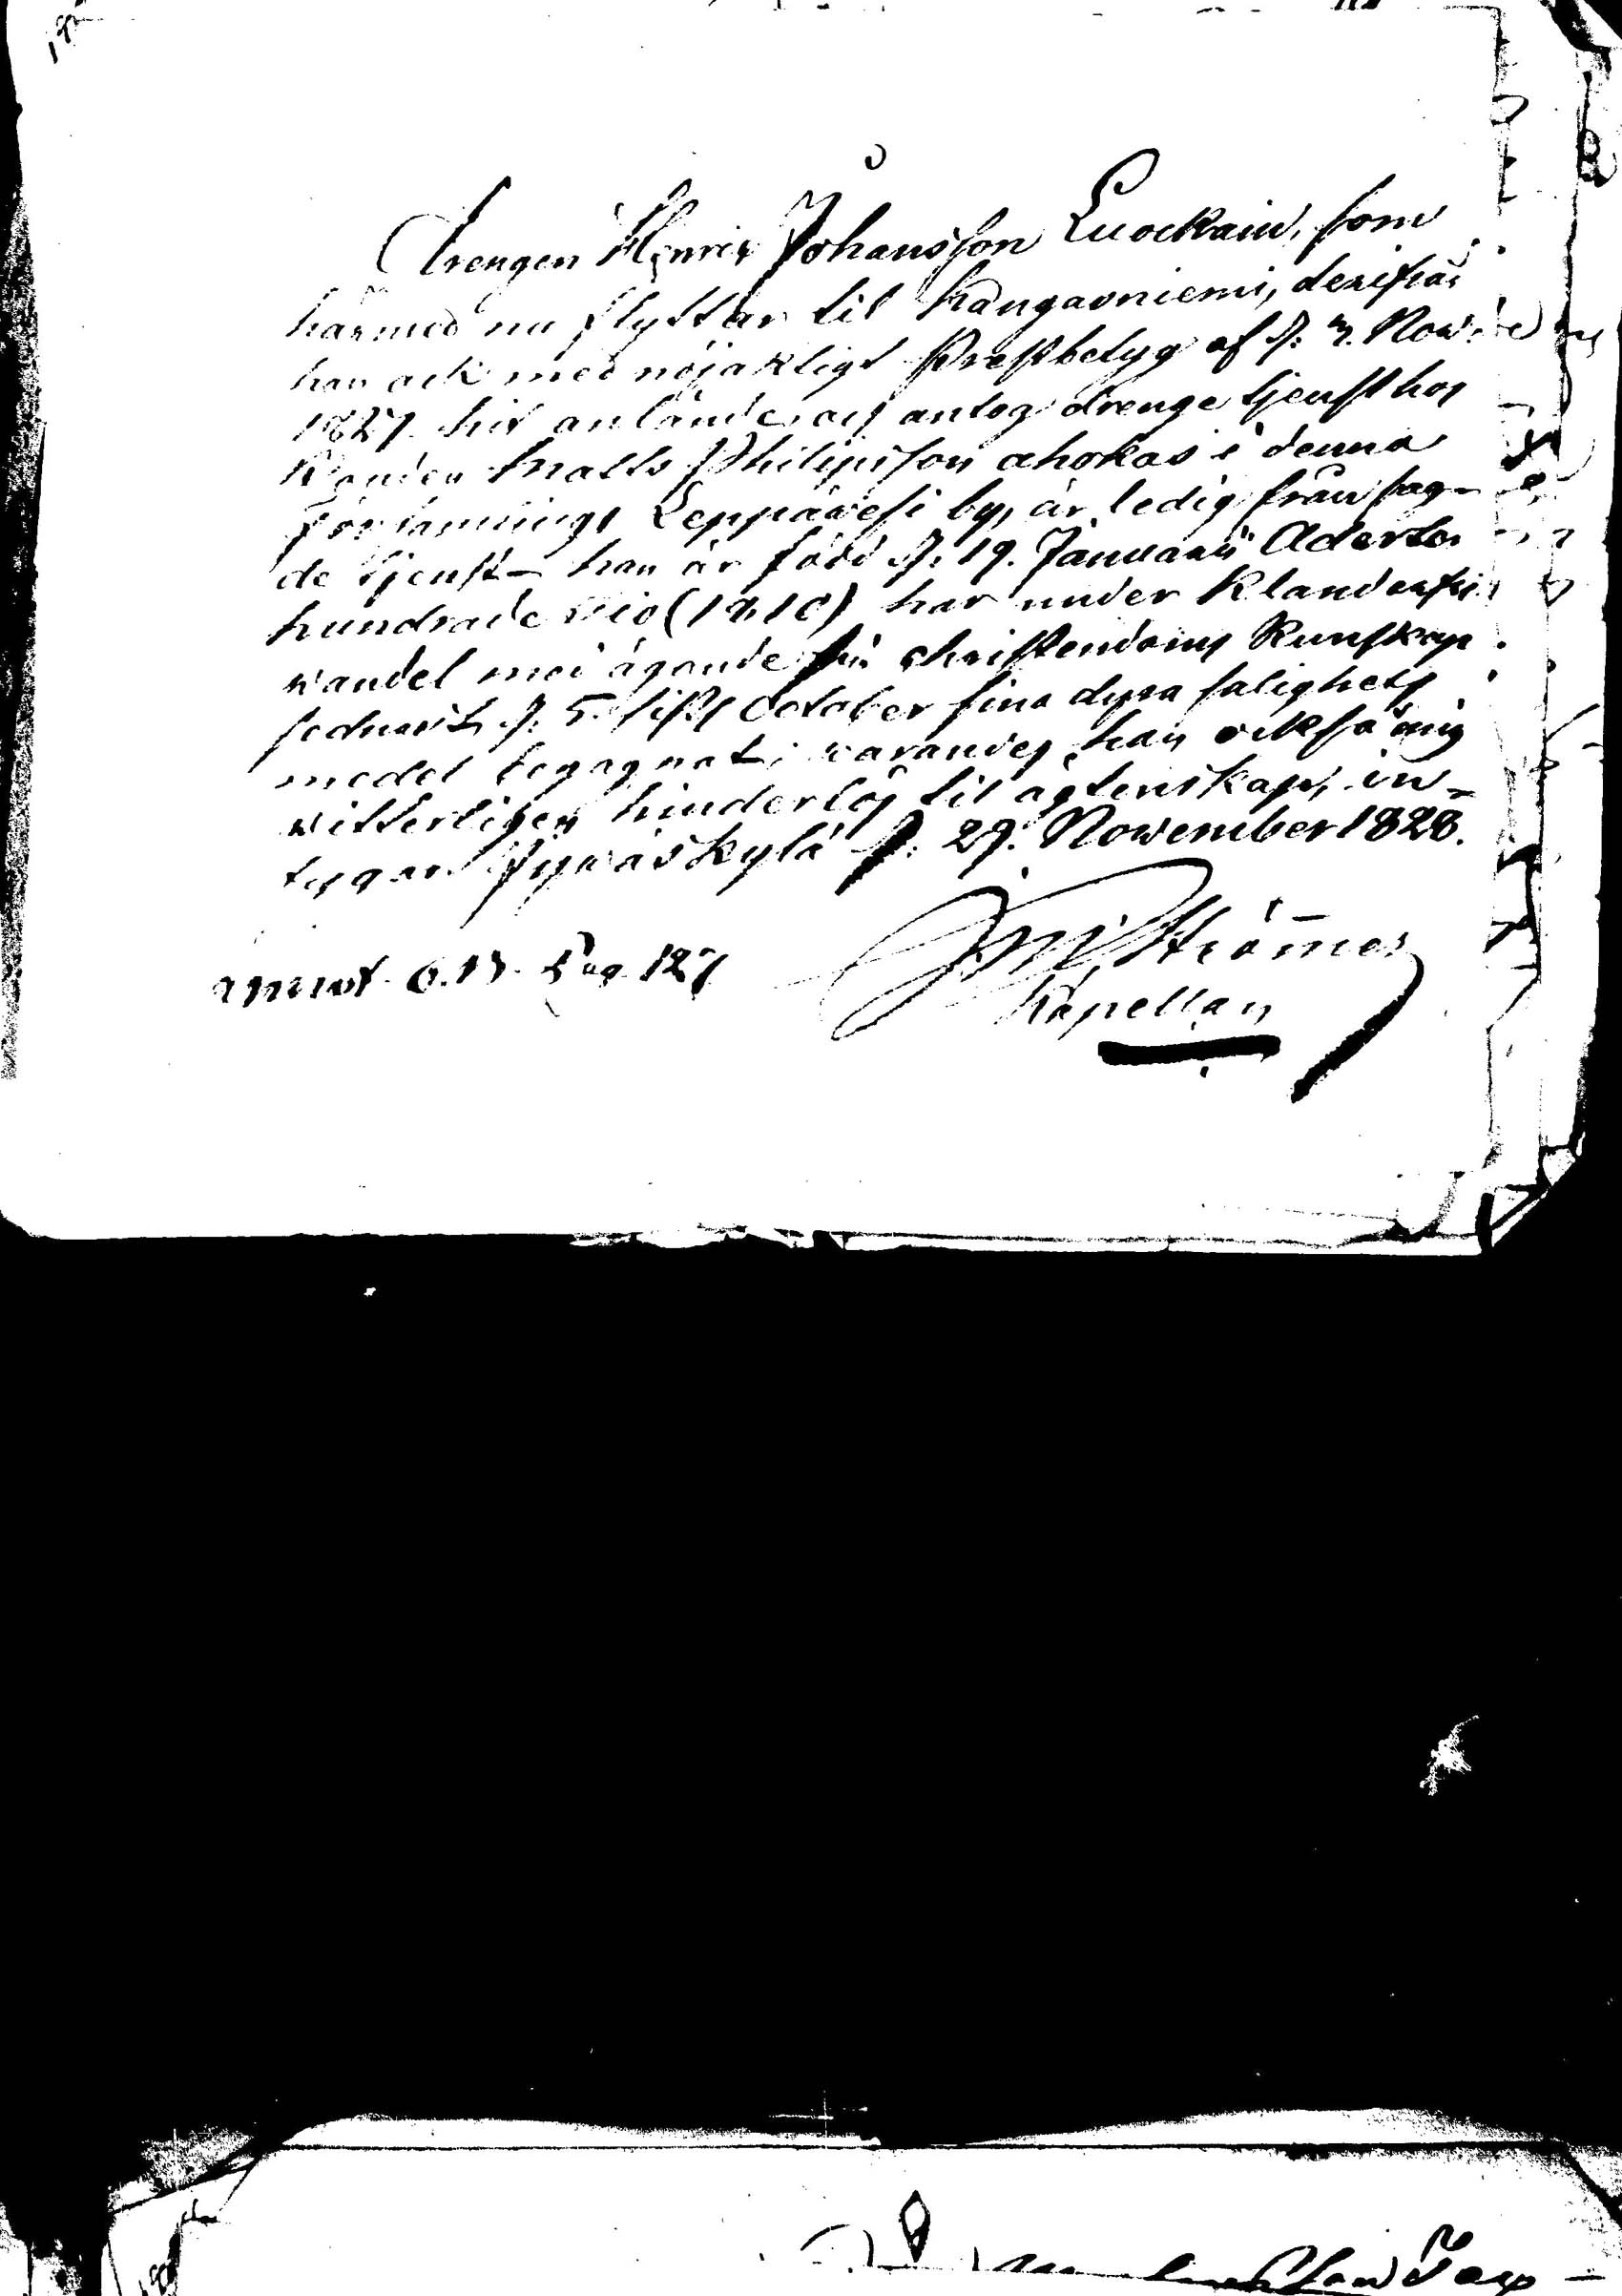 Drengen Henric Johansson Luockain, som
härmed nu flyttar til Kangasniemi, derifrån
han ock med nöjaktigt Prestbetyg af d: 3. Nov:
1827 hit anlände, och antog drenge tjenst hos
Bonden Matts Philipsson Ahokas i denna
Församlings Leppävesi by, är ledig från sag-
de tjenst – han är född d: 19. Januarii Aderton
hundrade tio (1810) har under klanderfri
wandel med ägande christendoms Kunskap
sednast d: 5. sistl October sina dyra salighets
medel begagnat; warandes han också mig
witterligen hinderlös til ägtenskap, in-
tygar Jywäskylä d: 29. November 1828.
Strömer
Kapellan
annot. Pag. 127